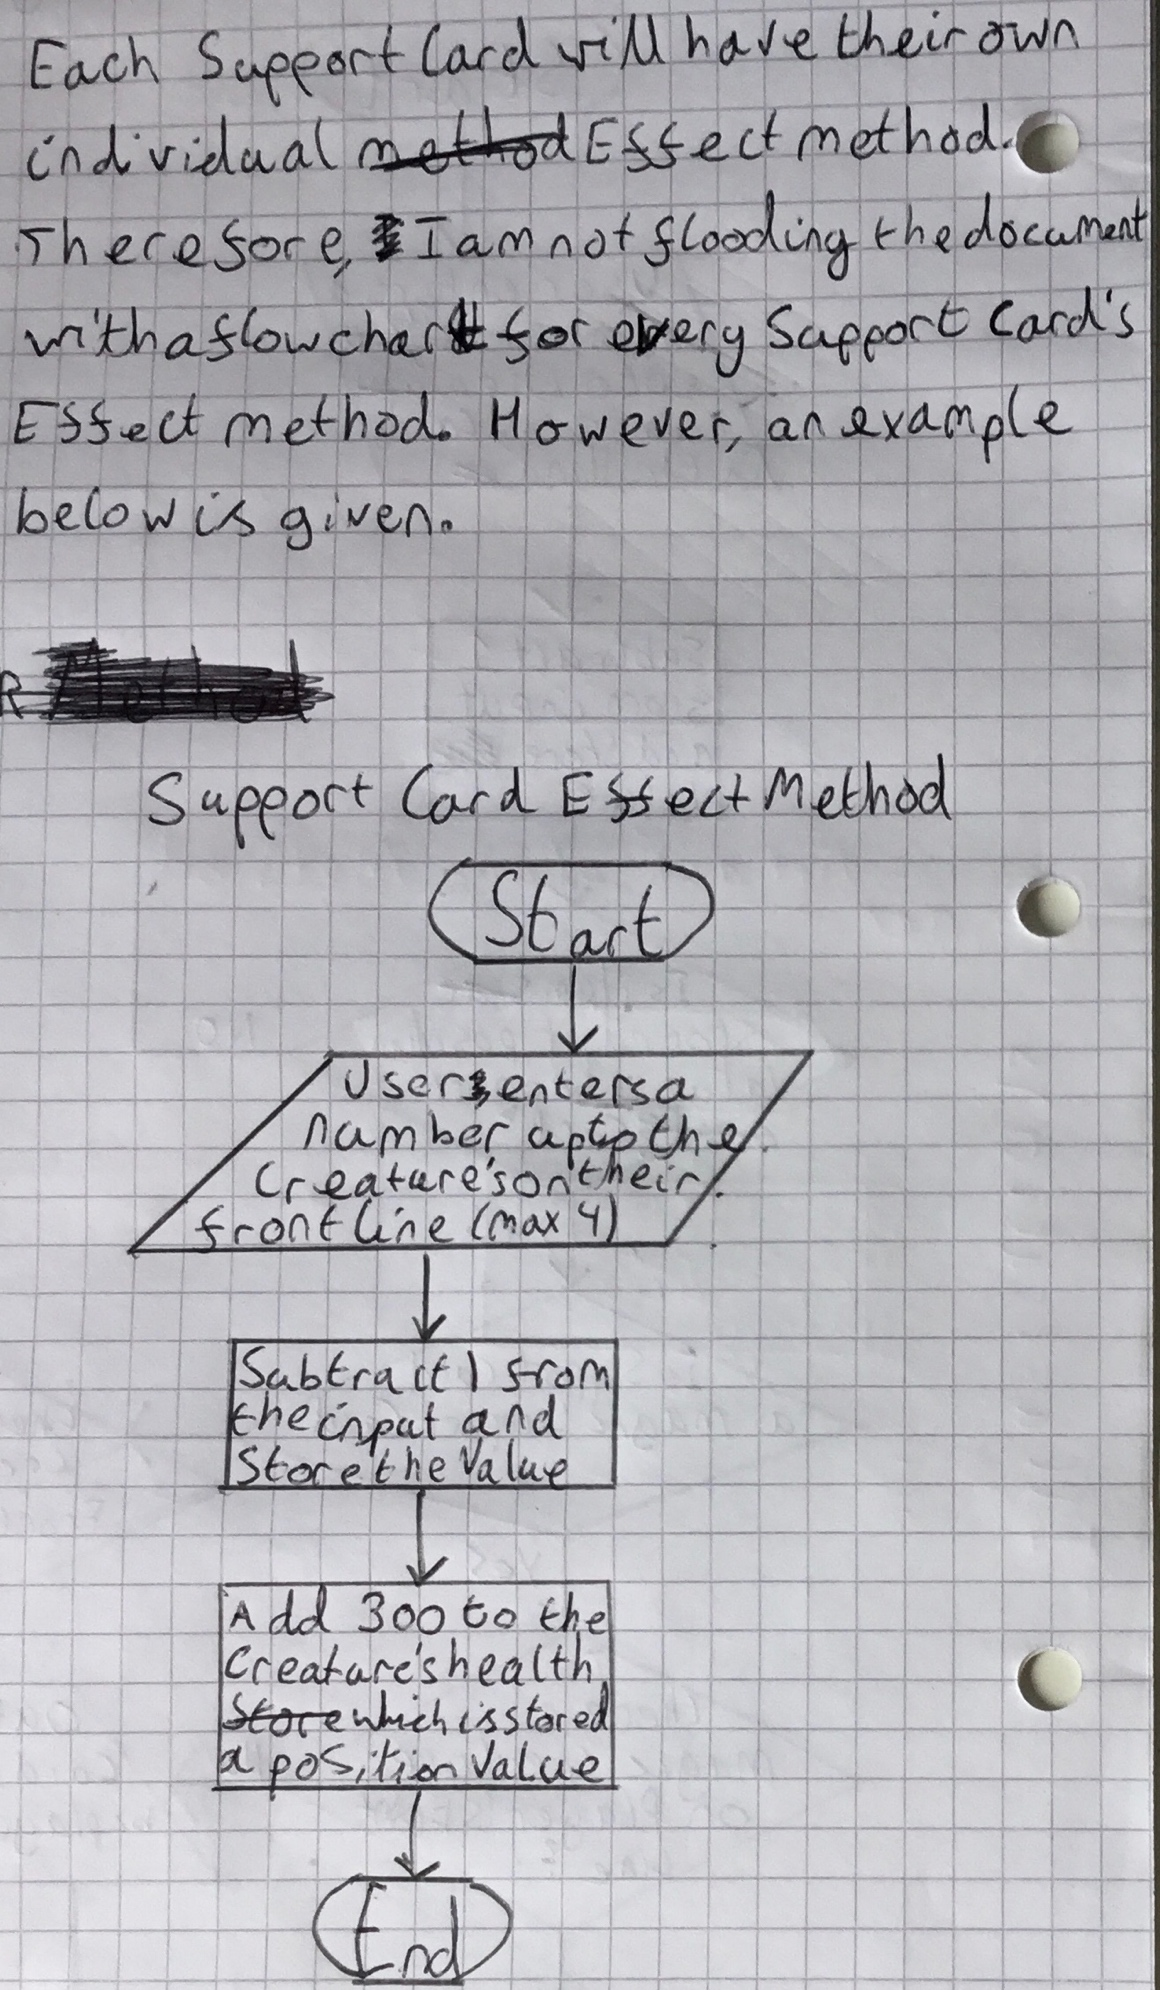 Each Support Card will have their own
individual method Effect method.
Therefore, I am not flooding the document
with a flowchart for every Support Card's
Effect method. However, an example
below is given.
R Method
Support Card Effect Method
Start
User enters a
number up to the
Creature's on their
front line (max 4)
Subtract 1 from
the input and
Store the Value
Add 300 to the
Creature's health
Store which is stored
a position Value
End